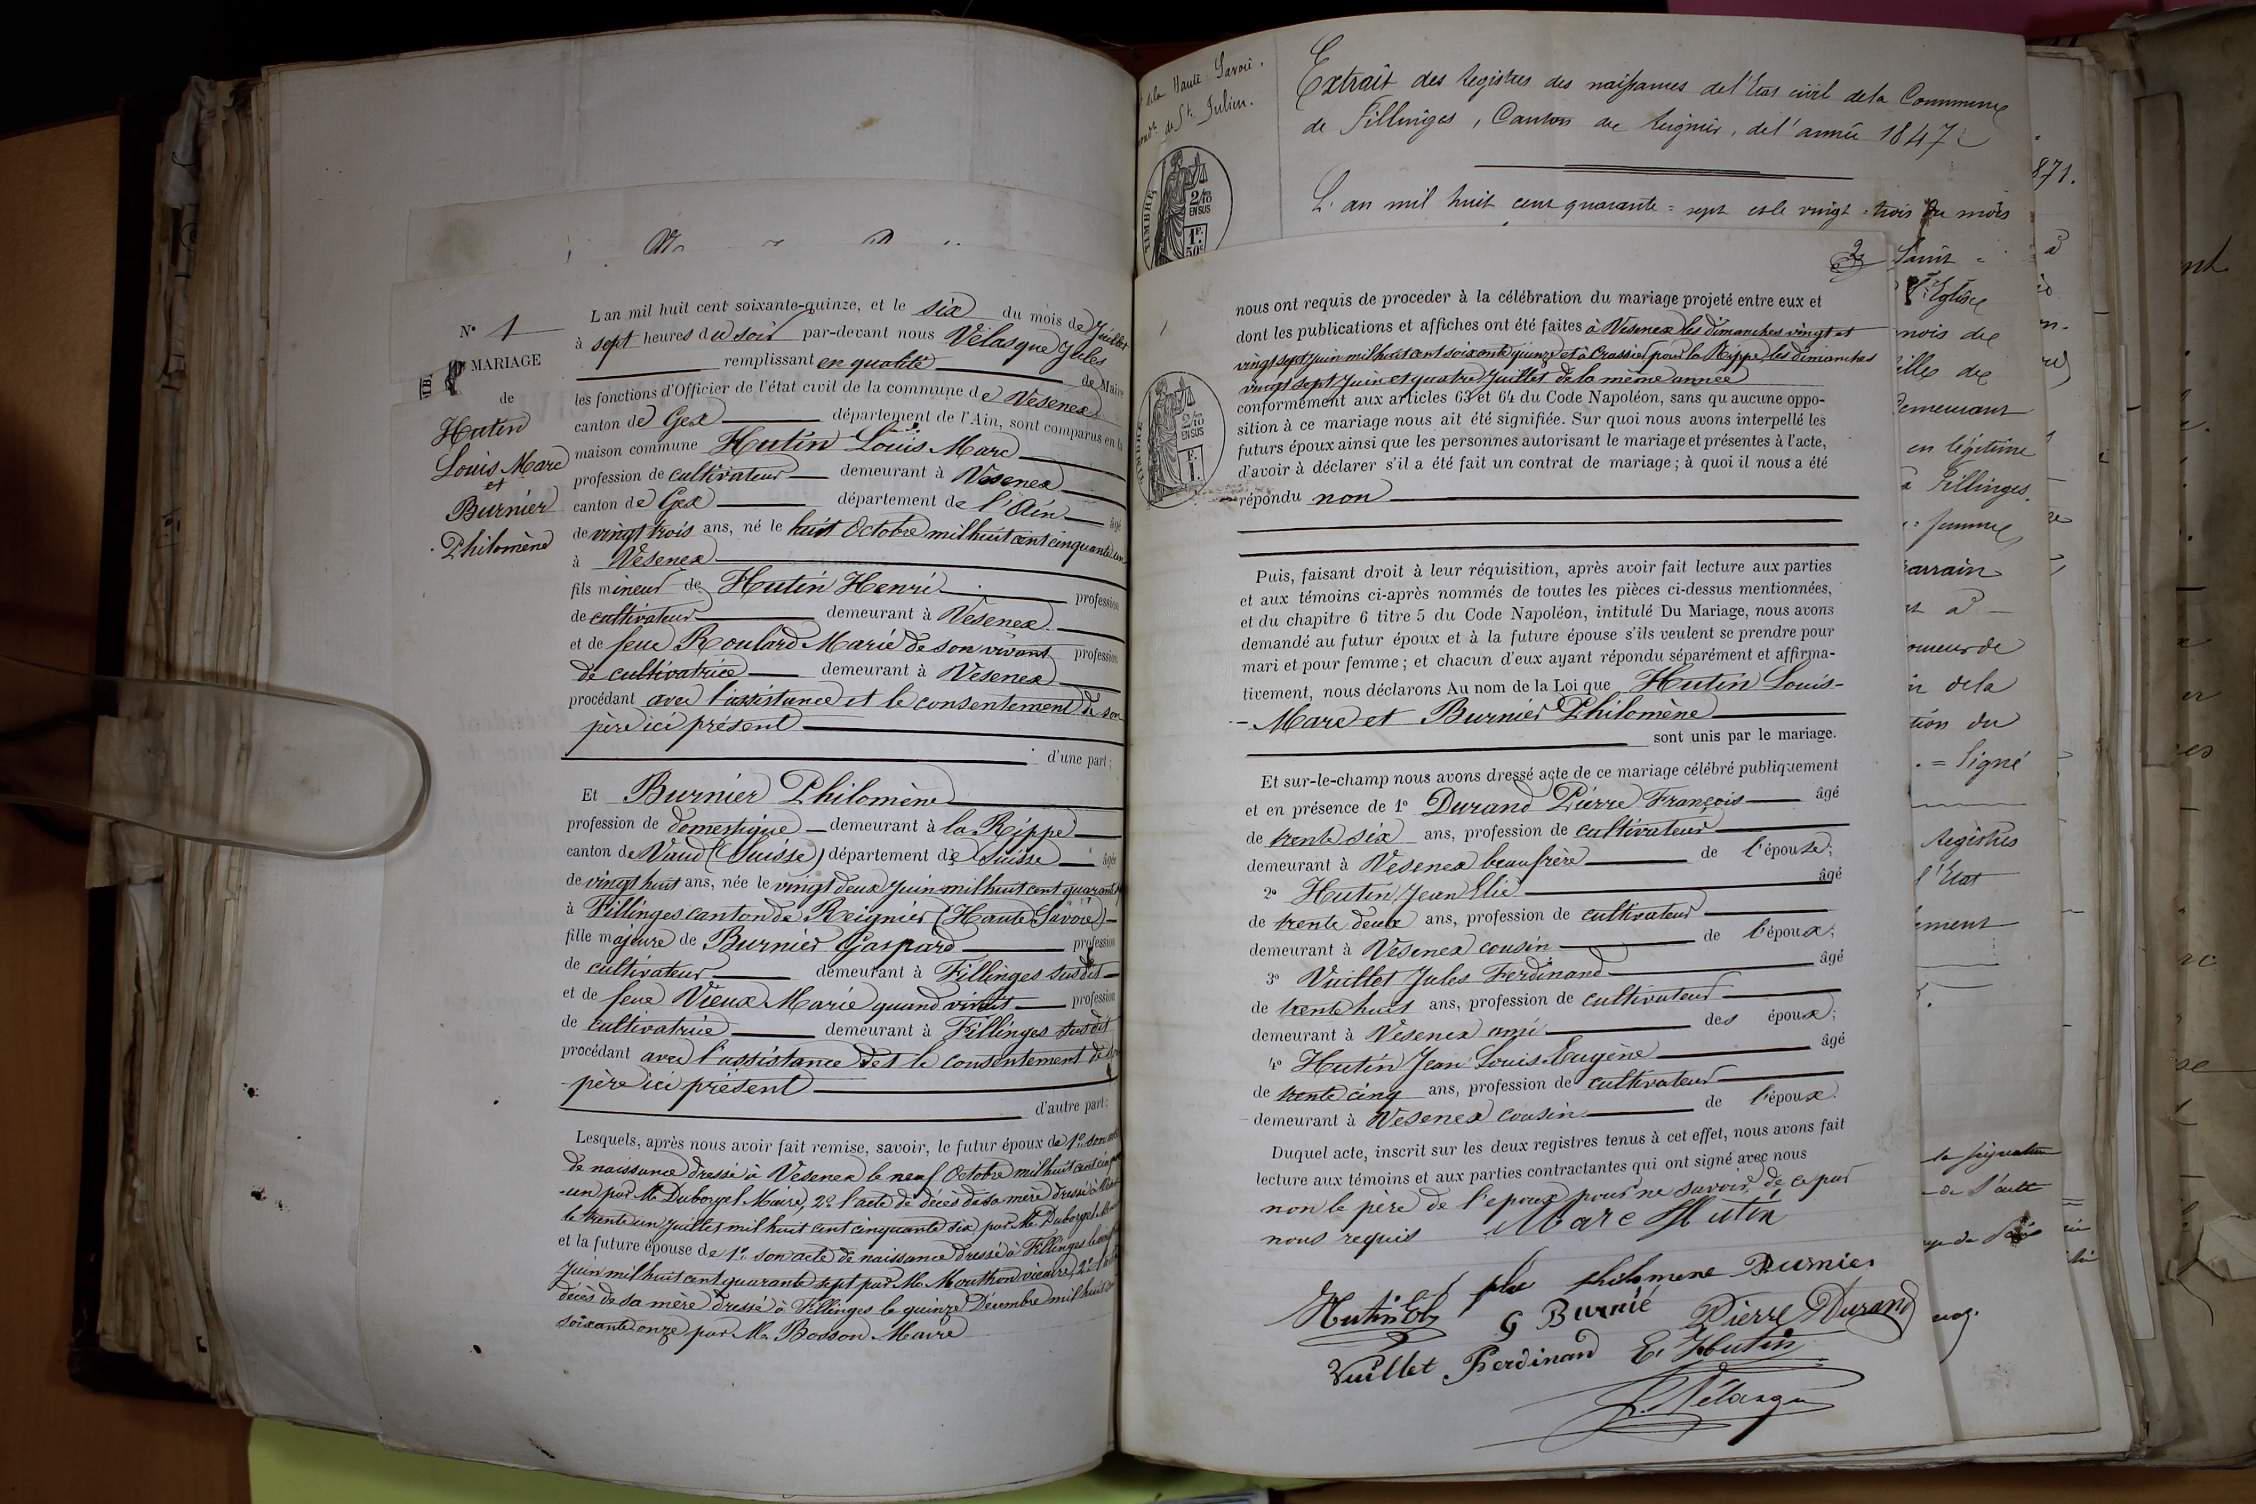 N° 1
MARIAGE
de
Hutin
Louis Marc
et
Burnier
Philomène
L'an mil huit cent soixante-quinze, et le six du mois de Juillet
à sept heures du soir par-devant nous Vélasque Jules
remplissant en qualité de Maire
les fonctions d'Officier de l'état civil de la commune de Vesenex
canton de Gex département de l'Ain, sont comparus en la
maison commune Hutin Louis Marc
profession de cultivateur demeurant à Vesenex
canton de Gex département de l'Ain âgé
de vingt trois ans, né le huit Octobre mil huit cent cinquante un
à Vesenex
fils mineur de Hutin Henri profession
de cultivateur demeurant à Vesenex
et de feue Roulard Marie de son vivant profession
de cultivatrice demeurant à Vesenex
procédant avec l'assistance et le consentement de son
père ici présent
d'une part;
Et Burnier Philomène
profession de domestique demeurant à la Rippe
canton de Vaud (Suisse) département de Suisse âgée
de vingt huit ans, née le vingt deux Juin mil huit cent quarante
à Fillinges canton de Reignier (Haute Savoie)
fille majeure de Burnier Gaspard profession
de cultivateur demeurant à Fillinges susdit
et de feue Vieux Marie quand vivait profession
de cultivatrice demeurant à Fillinges susdit
procédant avec l'assistance et le consentement de son
père ici présent
d'autre part;
Lesquels, après nous avoir fait remise, savoir, le futur époux de 1° son acte
de naissance dressé à Vesenex le neuf Octobre mil huit cent cinquante
un par Mr Duborgel Maire, 2° l'acte de décès de sa mère dressé à
le trente un Juillet mil huit cent cinquante six par Mr Duborgel
et la future épouse de 1° son acte de naissance dressé à Fillinges le
Juin mil huit cent quarante sept par Mr Mouthon vicaire, 2°
décès de sa mère dressé à Fillinges le quinze Décembre mil huit cent
soixante onze par Mr Bosson Maire
de la Haute Savoie.
de St Julien.
Extrait des registres des naissances de l'Etat civil de la Commune
de Fillinges, Canton de Reignier, de l'année 1847
L'an mil huit cent quarante = sept et le vingt = trois du mois
TIMBRE
2/10
EN SUS
1F.
50c
871.
2
nous ont requis de procéder à la célébration du mariage projeté entre eux et
dont les publications et affiches ont été faites à Vesenex les dimanches vingt et
vingt sept Juin mil huit cent soixante quinze et à Crassier pour la Rippe les dimanches
vingt sept Juin et quatre Juillet de la même année
conformément aux articles 63 et 64 du Code Napoléon, sans qu'aucune oppo-
sition à ce mariage nous ait été signifiée. Sur quoi nous avons interpellé les
futurs époux ainsi que les personnes autorisant le mariage et présentes à l'acte,
d'avoir à déclarer s'il a été fait un contrat de mariage; à quoi il nous a été
répondu non
TIMBRE
2/10
EN SUS
Puis, faisant droit à leur réquisition, après avoir fait lecture aux parties
et aux témoins ci-après nommés de toutes les pièces ci-dessus mentionnées,
et du chapitre 6 titre 5 du Code Napoléon, intitulé Du Mariage, nous avons
demandé au futur époux et à la future épouse s'ils veulent se prendre pour
mari et pour femme; et chacun d'eux ayant répondu séparément et affirma-
tivement, nous déclarons Au nom de la Loi que Hutin Louis-
Marc et Burnier Philomène
sont unis par le mariage.
Et sur-le-champ nous avons dressé acte de ce mariage célébré publiquement
et en présence de 1° Durand Pierre François âgé
de trente six ans, profession de cultivateur
demeurant à Vesenex beaufrère de l'épouse;
2° Hutin Jean Elie âgé
de trente deux ans, profession de cultivateur
demeurant à Vesenex cousin de l'époux;
3° Vuillet Jules Ferdinand âgé
de trente huit ans, profession de cultivateur
demeurant à Vesenex ami des époux;
4° Hutin Jean Louis Eugène âgé
de trente cinq ans, profession de cultivateur
demeurant à Vesenex cousin de l'époux.
Duquel acte, inscrit sur les deux registres tenus à cet effet, nous avons fait
lecture aux témoins et aux parties contractantes qui ont signé avec nous
non le père de l'époux pour ne savoir, de ce par
nous requis Marc Hutin
philomene Burnier
Hutin G Burnié Pierre Durand
Vuillet Ferdinand E. Hutin
J. Vélasque
Saint =
l'Eglise
mois de
fille de
demeurant
en légitime
à Fillinges.
femme
parrain
à
de la
du
= Signé
Registres
l'Etat
la signature
de